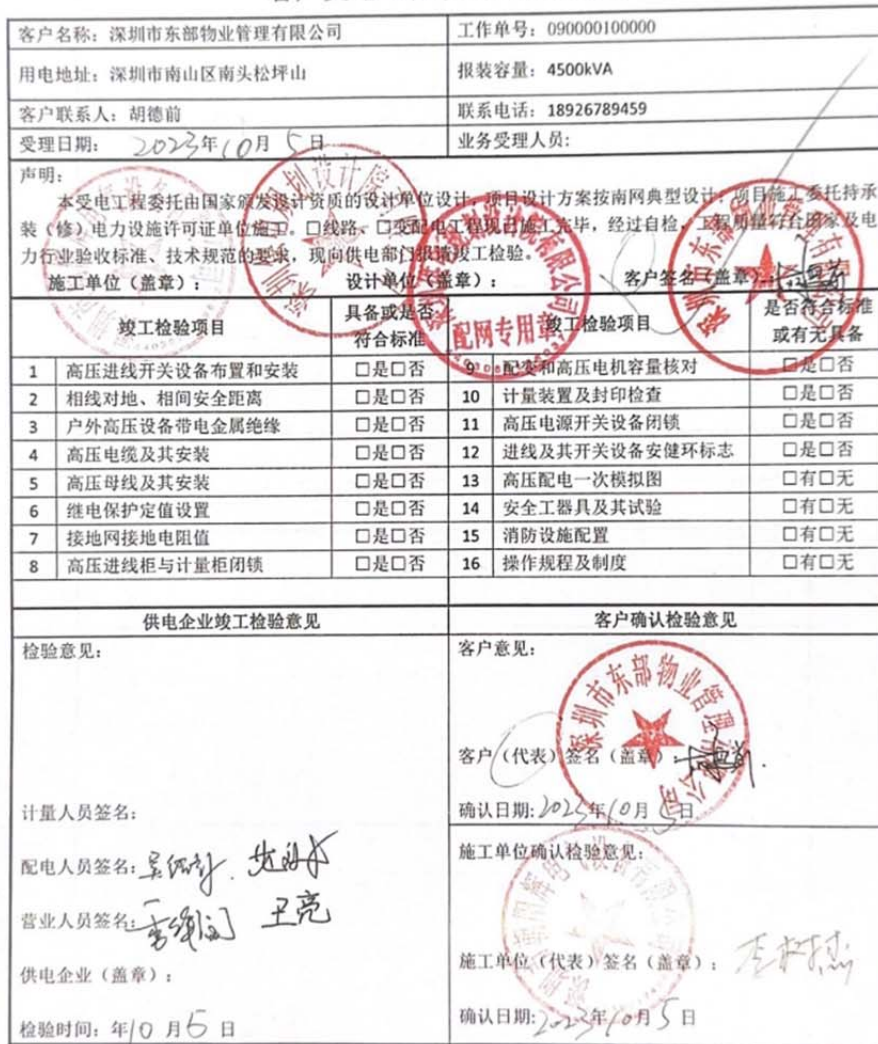 客户名称：深圳市东部物业管理有限公司
工作单号：090000100000
用电地址：深圳市南山区南头松坪山
报装容量：4500kVA
客户联系人：胡德前
联系电话：18926789459
受理日期： 2023年10月5日
业务受理人员：
声明：
本受电工程委托由国家颁发设计资质的设计单位设计，项目设计方案按南网典型设计，项目施工委托持承
装（修）电力设施许可证单位施工。□线路、□变配电工程现已施工完毕，经过自检，工程质量符合国家及电
力行业验收标准、技术规范的要求，现向供电部门报请竣工检验。
施工单位（盖章）： 设计单位（盖章）： 客户签名（盖章）：
竣工检验项目 具备或是否符合标准 竣工检验项目 是否符合标准或有无具备
1 高压进线开关设备布置和安装 □是□否 9 配变和高压电机容量核对 □是□否
2 相线对地、相间安全距离 □是□否 10 计量装置及封印检查 □是□否
3 户外高压设备带电金属绝缘 □是□否 11 高压电源开关设备闭锁 □是□否
4 高压电缆及其安装 □是□否 12 进线及其开关设备安健环标志 □是□否
5 高压母线及其安装 □是□否 13 高压配电一次模拟图 □有□无
6 继电保护定值设置 □是□否 14 安全工器具及其试验 □有□无
7 接地网接地电阻值 □是□否 15 消防设施配置 □有□无
8 高压进线柜与计量柜闭锁 □是□否 16 操作规程及制度 □有□无
配网专用章
供电企业竣工检验意见
检验意见：
计量人员签名：
配电人员签名：
营业人员签名： 王亮
供电企业（盖章）：
检验时间：年10月5日
客户确认检验意见
客户意见：
深圳市东部物业管理有限公司
客户（代表）签名（盖章）：
确认日期：2023年10月5日
施工单位确认检验意见：
施工单位（代表）签名（盖章）： 李树杰
确认日期：2023年10月5日